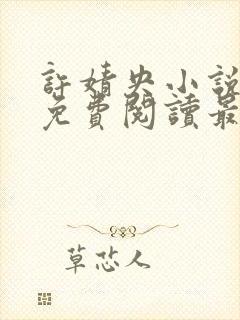 許婧央小說
免費閱讀最
草芯人